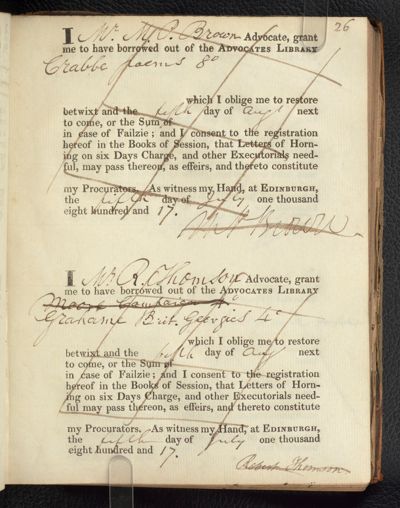 26
I Mr. M. P. Brown Advocate, grant
me to have borrowed out of the ADVOCATES LIBRARY
Crabbe poems 8°
which I oblige me to restore
betwixt and the fifth day of Augt next
to come, or the Sum of
in case of Failzie; and I consent to the registration
hereof in the Books of Session, that Letters of Horn-
ing on six Days Charge, and other Executorials need-
ful, may pass thereon, as effeirs, and thereto constitute
my Procurators. As witness my Hand, at EDINBURGH,
the fifth day of July one thousand
eight hundred and 17.
M P Brown
I Mr. R. Thomson Advocate, grant
me to have borrowed out of the ADVOCATES LIBRARY
Moore Campaign 4°
Grahame Brit. Georgics 4°
which I oblige me to restore
betwixt and the fifth day of Aug next
to come, or the Sum of
in case of Failzie; and I consent to the registration
hereof in the Books of Session, that Letters of Horn-
ing on six Days Charge, and other Executorials need-
ful may pass thereon, as effeirs, and thereto constitute
my Procurators. As witness my Hand, at EDINBURGH,
the fifth day of July one thousand
eight hundred and 17.
Robert Thomson